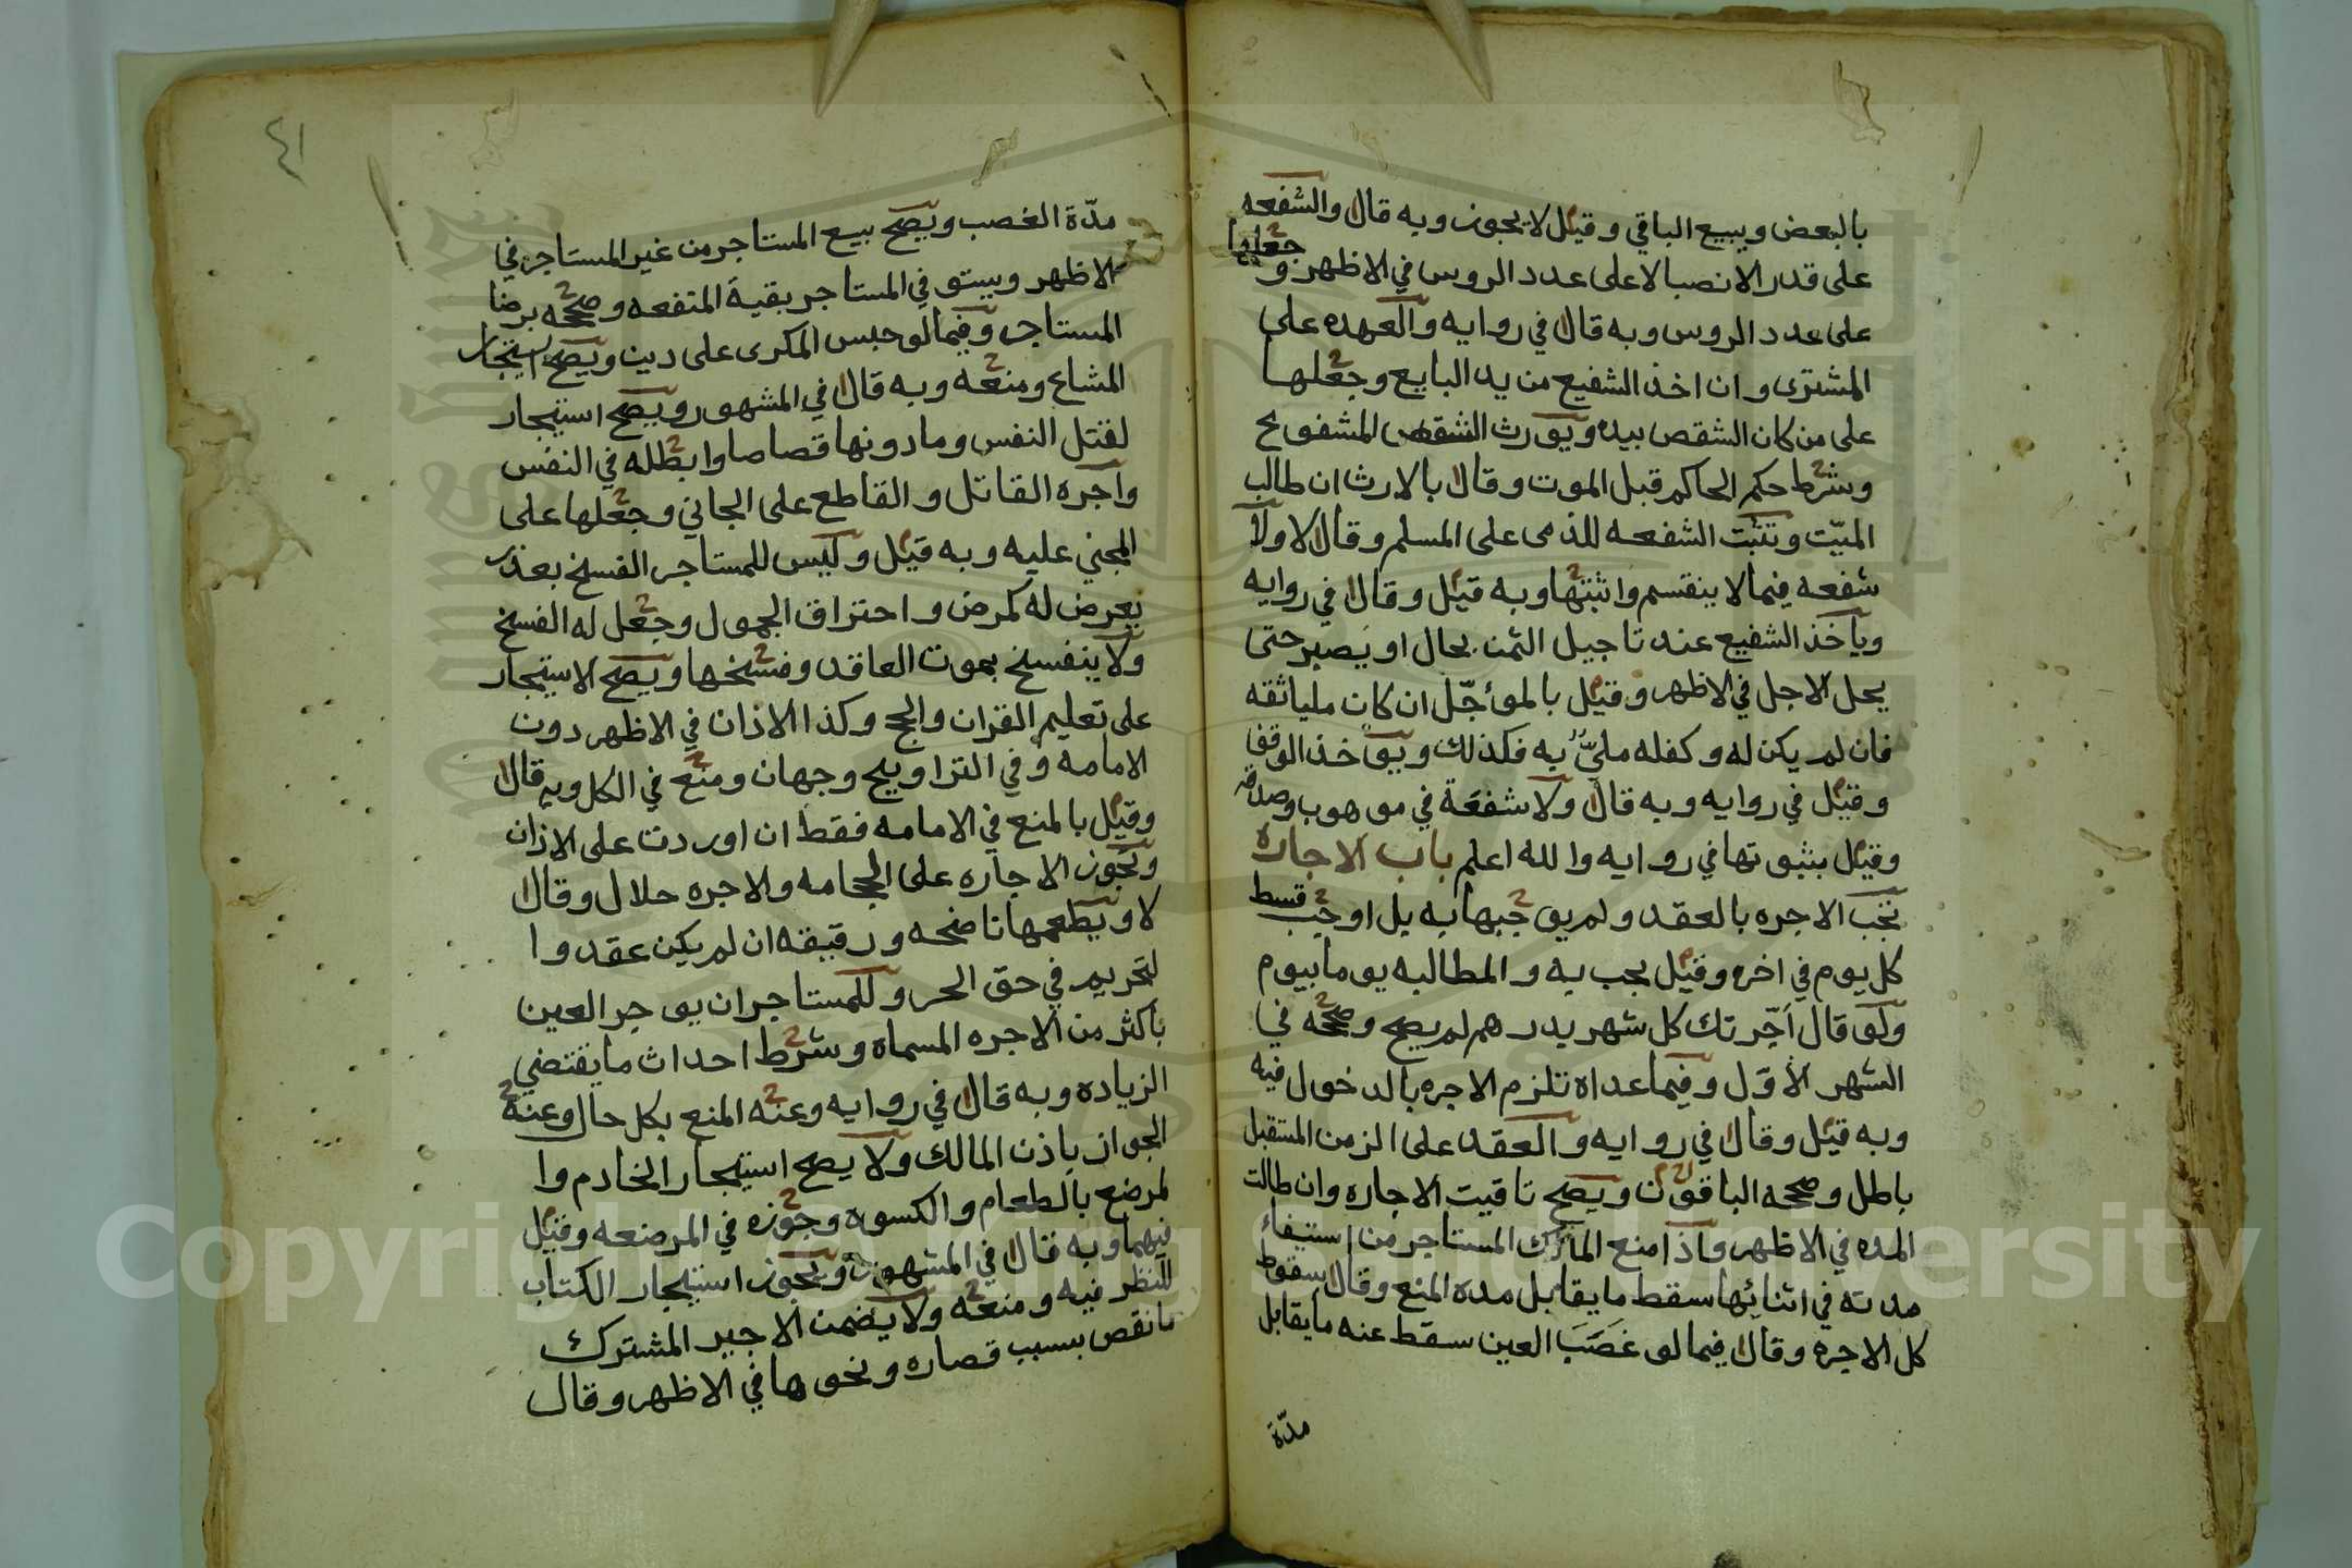 بالبعض ويبيع الباقي وقيل لا يجوز وبه قال والشفعه
على قدر الانصبا لا على عدد الروس في الاظهر وجعلها
على عدد الروس وبه قال في روايه والعهده على
المشترى وان اخذ الشفيع من يد البايع وجعلها
على من كان الشقص بيده ويورث الشقص المشفوع
وشرط حكم الحاكم قبل الموت وقال بالارث ان طالب
الميّت وتثبت الشفعه للذمى على المسلم وقال لا ولا
شفعه فيما لا ينقسم واثبتها وبه قيل وقال في روايه
وياخذ الشفيع عند تاجيل الثمن بحال او يصير حتى
يحل الاجل في الاظهر وقيل بالمؤجّل ان كان مليا ثقه
فان لم يكن له وكفله مليّ به فكذلك ويؤخذ الوقف
وقيل في روايه وبه قال ولا شفعة في موهوب وصدقه
وقيل بثبوتها في روايه والله اعلم باب الاجاره
تجب الاجره بالعقد ولم يوجبها به بل اوجب قسط
كل يوم في اخره وقيل يجب به والمطالبه يوما بيوم
ولو قال اجّرتك كل شهر بدرهم لم يصح وصححه في
الشهر الاوّل وفيما عداه تلزم الاجره بالدخول فيه
وبه قيل وقال في روايه والعقد على الزمن المستقبل
باطل وصححه الباقون ويصح تاقيت الاجاره وان طالت
المده في الاظهر واذا منع المالك المستاجر من استيفاء
مدته في اثنائها سقط ما يقابل مده المنع وقال بسقوط
كل الاجره وقال فيما لو غصب العين سقط عنه ما يقابل
مدّة
٤١
مدّة الغصب ويصح بيع المستاجر من غير المستاجر في
الاظهر ويستوفي المستاجر بقية المنفعه وصححه برضا
المستاجر وفيما لو حبس المكرى على دين ويصح استيجار
المشاع ومنعه وبه قال في المشهور ويصح استيجار
لقتل النفس وما دونها قصاصا وابطله في النفس
واجره القاتل والقاطع على الجاني وجعلها على
المجني عليه وبه قيل وليس للمستاجر الفسخ بعذر
يعرض له كمرض واحتراق المحمول وجعل له الفسخ
ولا ينفسخ بموت العاقد وفسخها ويصح الاستيجار
على تعليم القران والحج وكذا الاذان في الاظهر دون
الامامه وفي التراويح وجهان ومنع في الكل وبه قال
وقيل بالمنع في الامامه فقط ان اوردت على الاذان
وتجوز الاجاره على الحجامه والاجره حلال وقال
لا ويطعمها ناضحه ورقيقه ان لم يكن عقد وا
لتحريم في حق الحر وللمستاجر ان يوجر العين
باكثر من الاجره المسماه وشرط احداث ما يقتضي
الزياده وبه قال في روايه وعنه المنع بكل حال وعنه
الجواز باذن المالك ولا يصح استيجار الخادم وا
لمرضع بالطعام والكسوه وجوزه في المرضعه وقيل
فيهما وبه قال في المشهور ويجوز استيجار الكتاب
للنظر فيه ومنعه ولا يضمن الاجير المشترك
ما نقص بسبب قصاره ونحوها في الاظهر وقال
Copyright © King Saud University